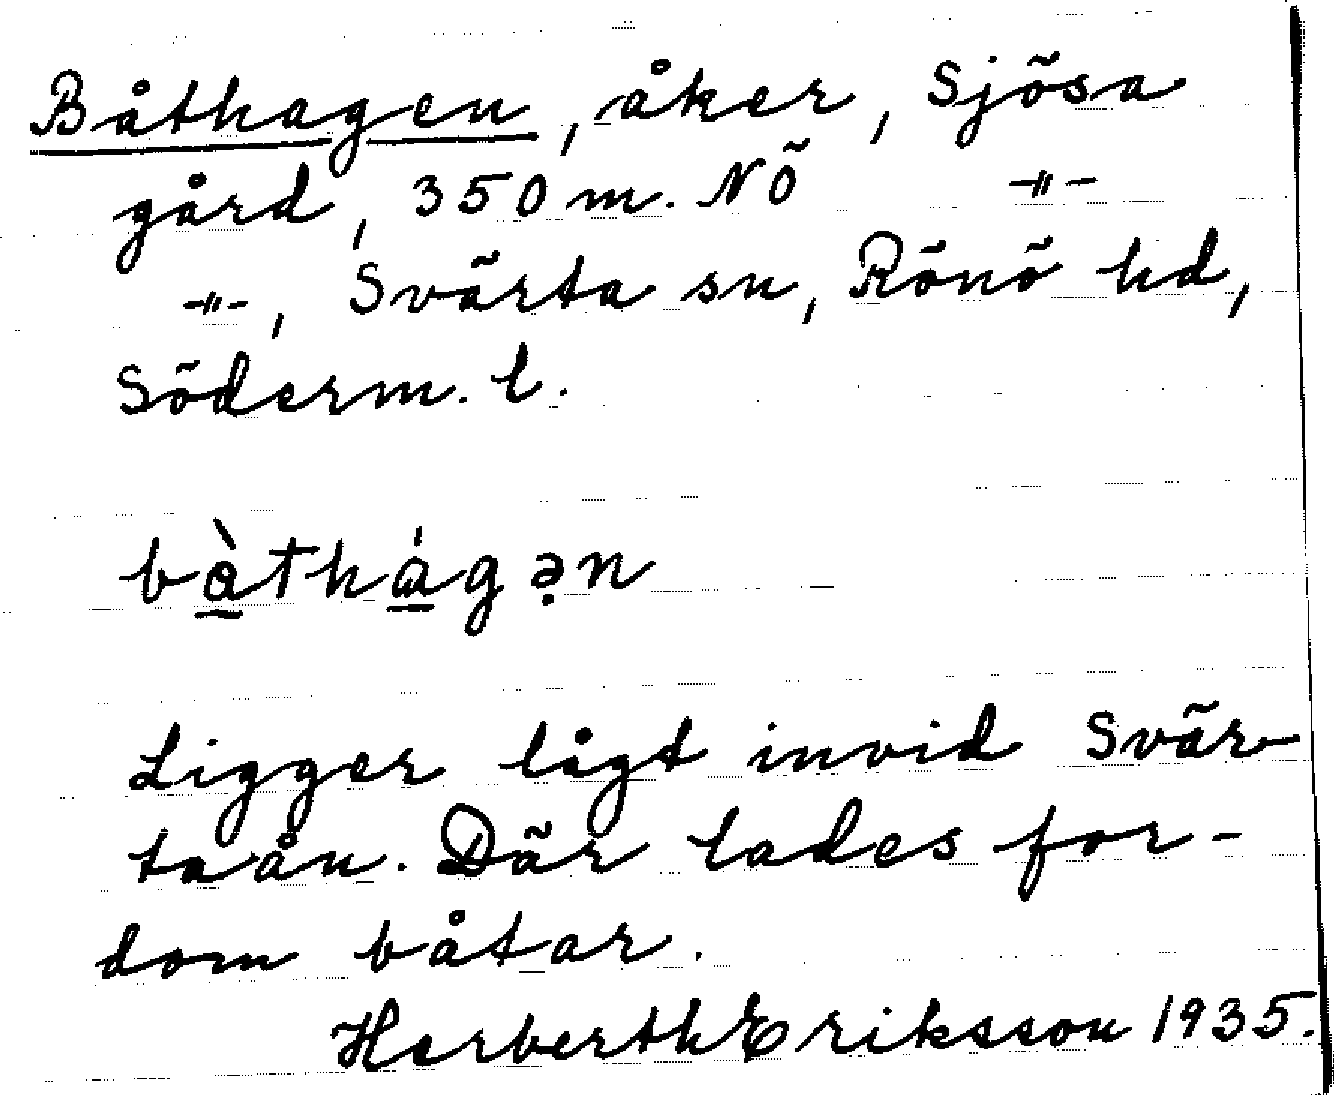 Båthagen, åker, Sjösa
gård, 350 m. NÖ -"-
-"-, Svärta sn, Rönö hd,
Söderm. l.
bå̀thágə̣n
Ligger lågt invid Svär-
taån. Där lades for-
dom båtar.
Herberth Eriksson 1935.